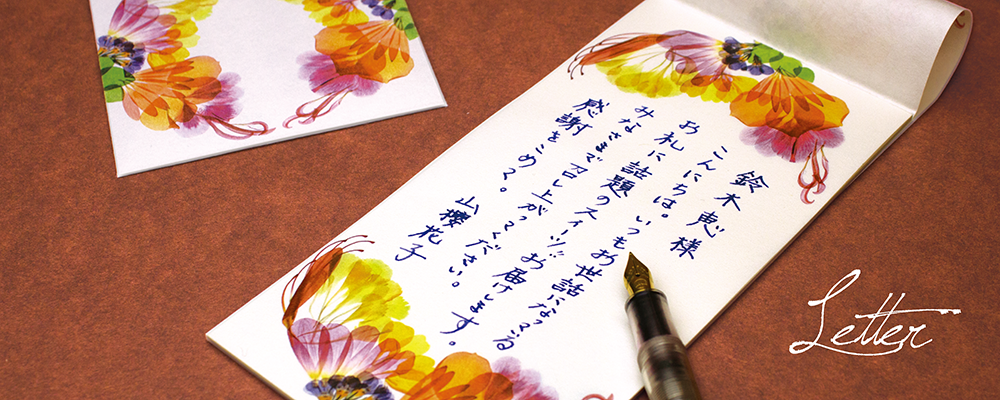 鈴木恵様
こんにちは。いつもお世話になっている
お礼に話題のスイーツお届けします。
みなさまで召し上がってください。
感謝をこめて。山櫻花子
Letter